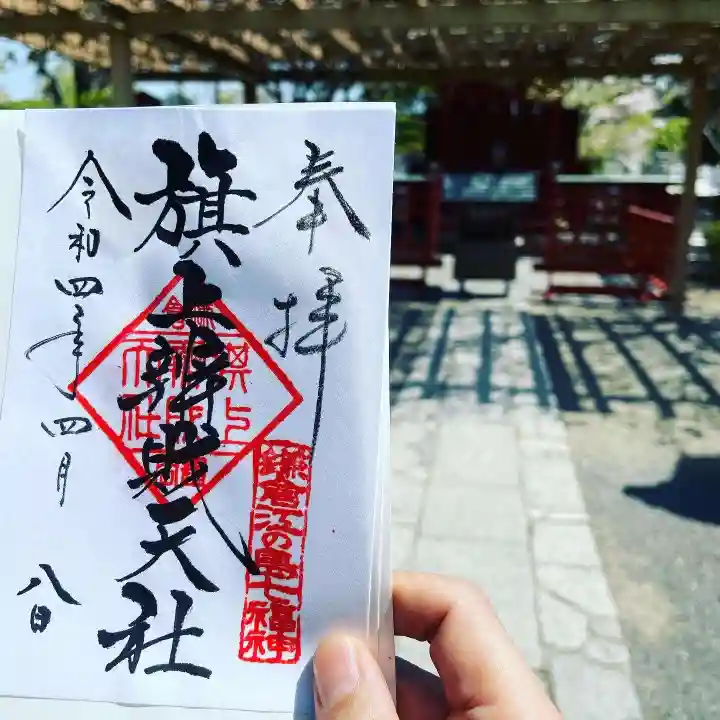 奉拝
旗上辨財天社
鎌倉江の島七福神
令和四年四月八日